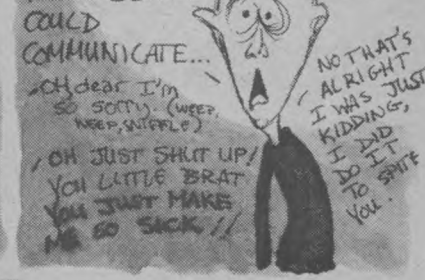 COULD
COMMUNICATE...
OH, dear I'm
SO SORRY. (WEEP,
WEEP, SNIFFLE)
OH JUST SHUT UP!
YOU LITTLE BRAT
YOU JUST MAKE
ME SO SICK!!
NO THAT'S
ALRIGHT
I WAS JUST
KIDDING,
I DID
DO IT
TO SPITE
YOU.